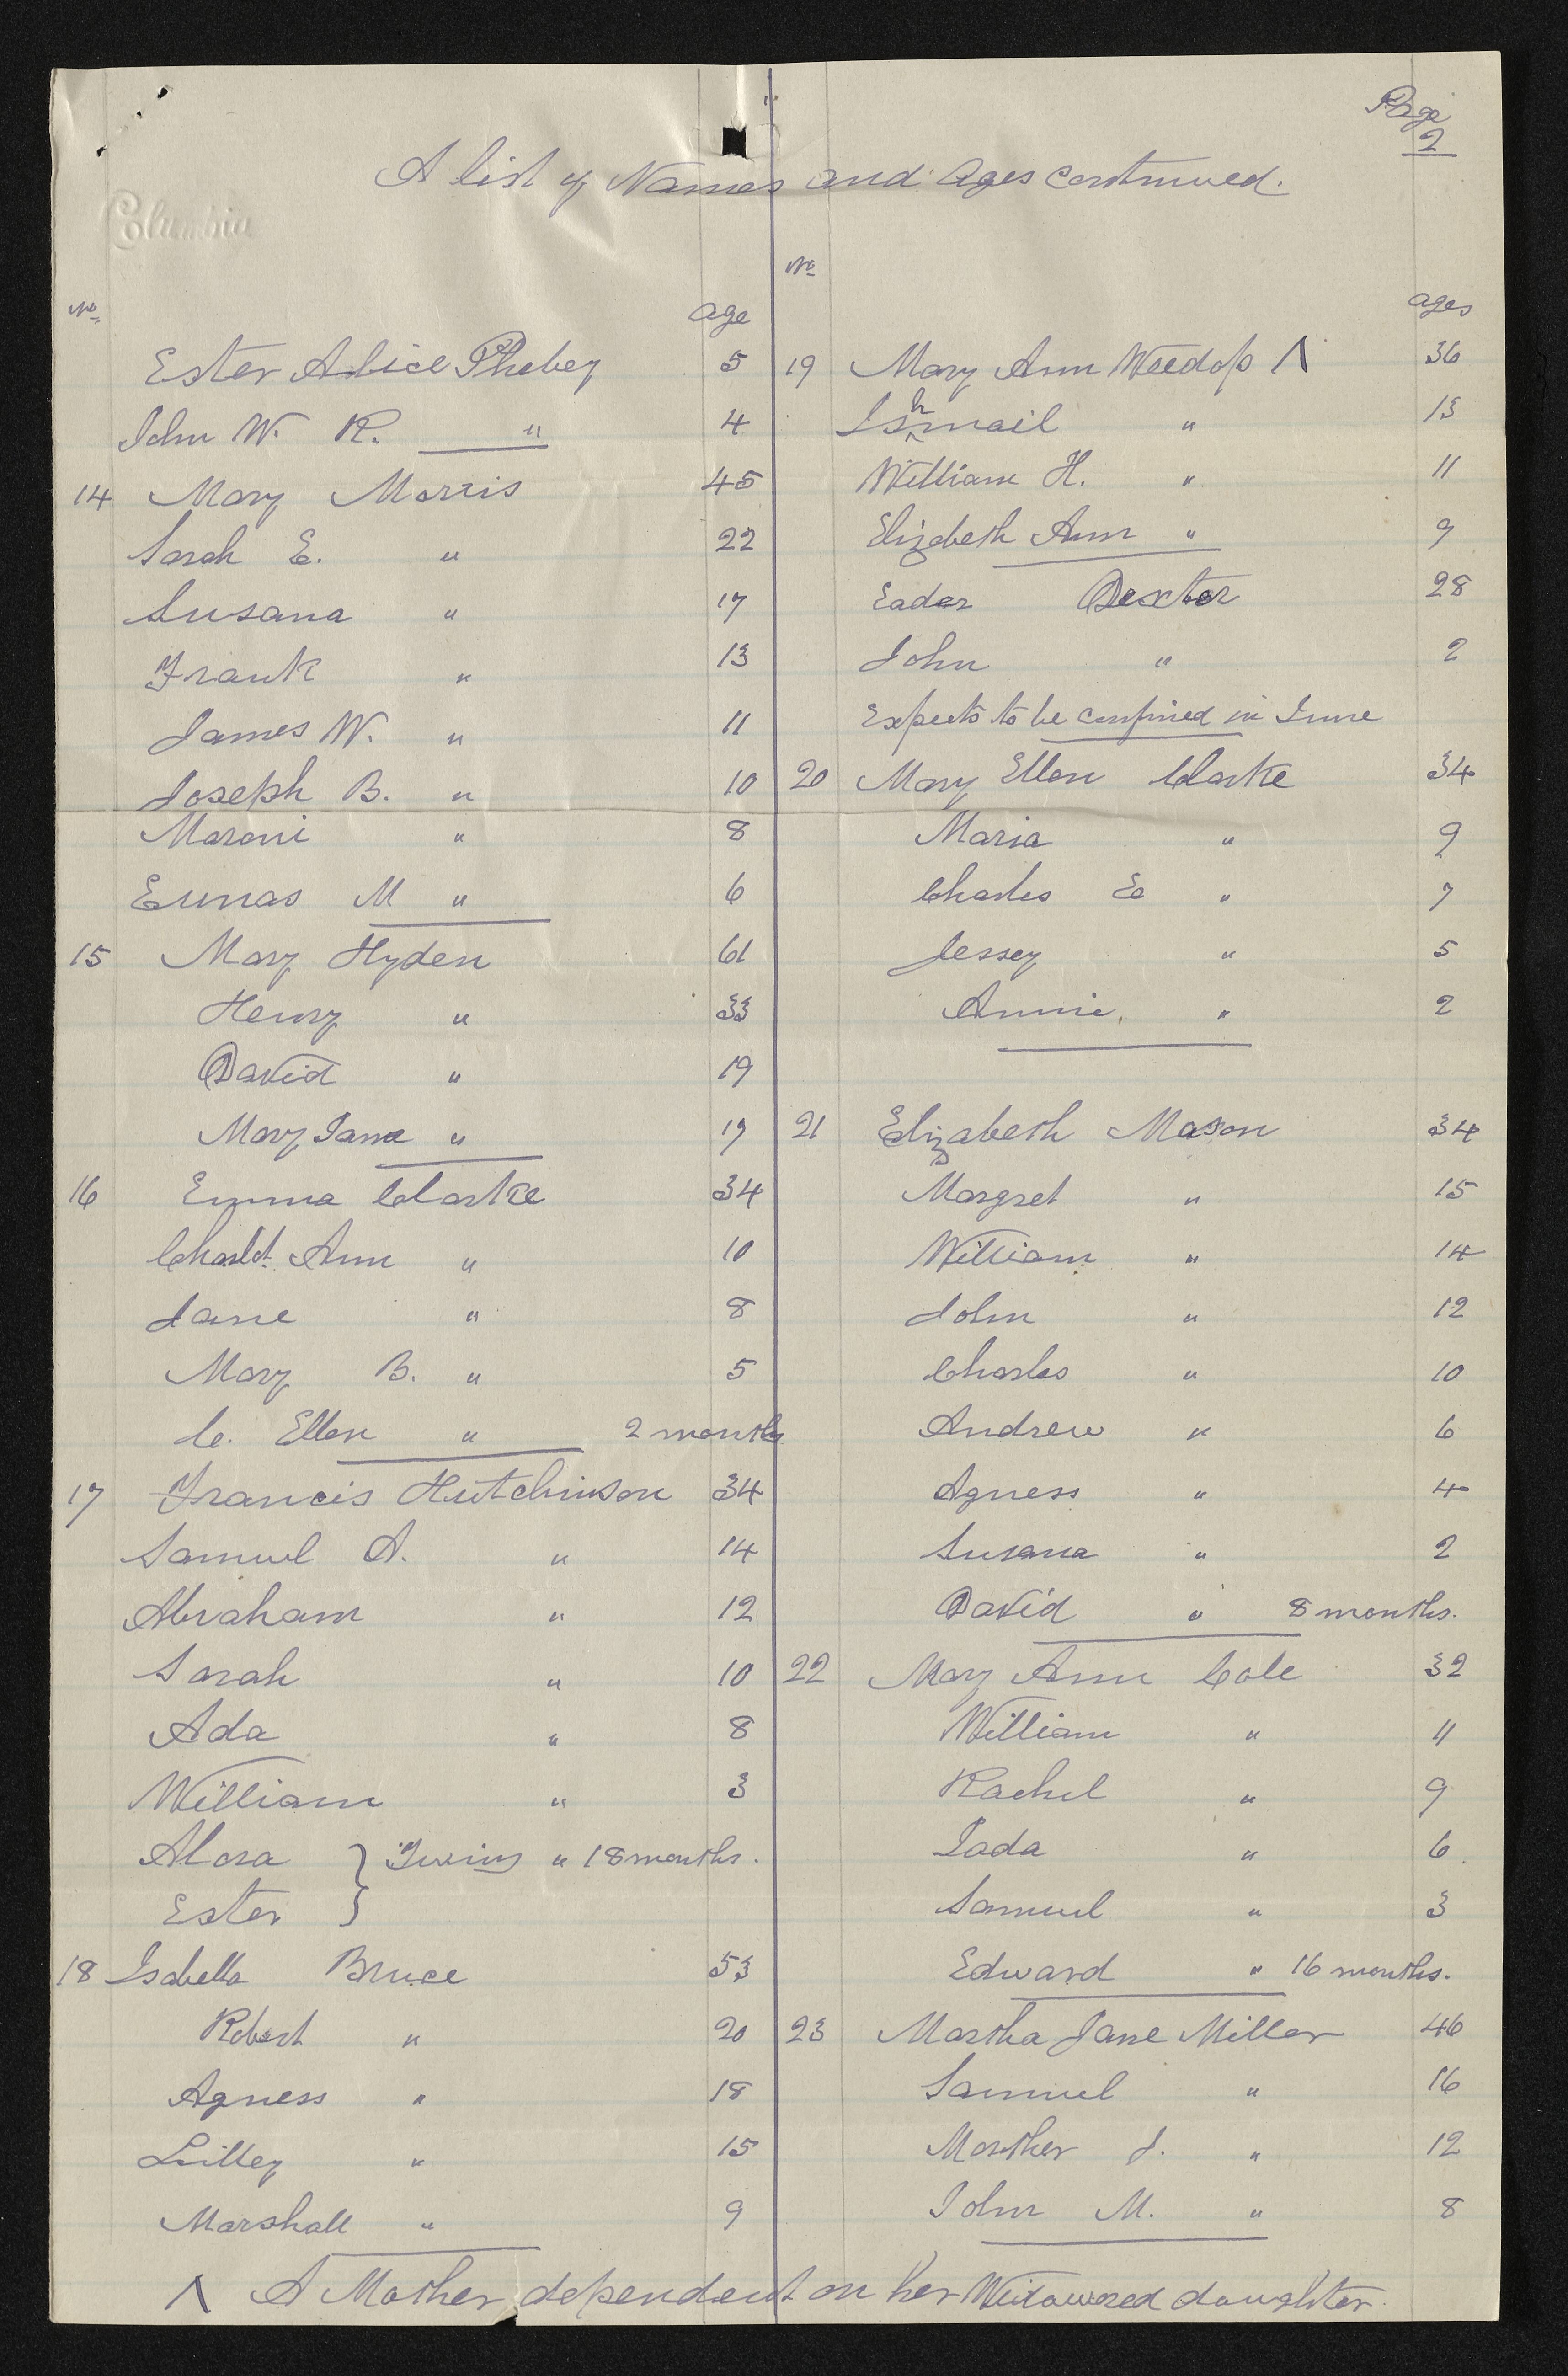 Page
2
A list of Names and Ages continued.
Columbia
No. age
Ester Alice Phebey 5
John W. R. " 4
14 Mary Morris 45
Sarah E. " 22
Susana " 17
Frank " 13
James W. " 11
Joseph B. " 10
Maroni " 8
Eunas M " 6
15 Mary Hyden 61
Henry " 33
David " 19
Mary Jane " 17
16 Emma Clarke 34
Charlot. Ann " 10
Jane " 8
Mary B. " 5
C. Ellen " 2 months
17 Francis Hutchinson 34
Samuel A. " 14
Abraham " 12
Sarah " 10
Ada " 8
William " 3
Alora } Twins " 18 months.
Ester }
18 Isabella Bruce 53
Robert " 20
Agness " 18
Lilley " 15
Marshall " 9
No ages
19 Mary Ann Weedop Λ 36
Ishmail " 13
William H. " 11
Elizabeth Ann " 9
Eader Dexter 28
John " 2
Expects to be confined in June
20 Mary Ellen Clarke 34
Maria " 9
Charles E " 7
Jessey " 5
Annie. " 2
21 Elizabeth Mason 34
Margret " 15
William " 14
John " 12
Charles " 10
Andrew " 6
Agness " 4
Susana " 2
David " 8 months.
22 Mary Ann Cole 32
William " 11
Rachel " 9
Iada " 6
Samuel " 3
Edward " 16 months.
23 Martha Jane Miller 46
Samuel " 16
Marther J. " 12
John M. " 8
Λ A Mother dependent on her Widowered daughter.